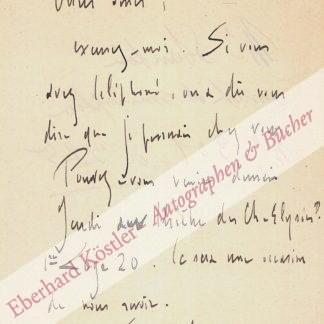 excusez-moi. Si vous
avez téléphoné, on a dû vous
dire que je passerais chez vous
Pouvez-vous venir demain
Jeudi Théâtre des Ch-Elysées?
1re Loge 20. Ce sera une occasion
de nous revoir.
Eberhard Köstler Autographen & Bücher